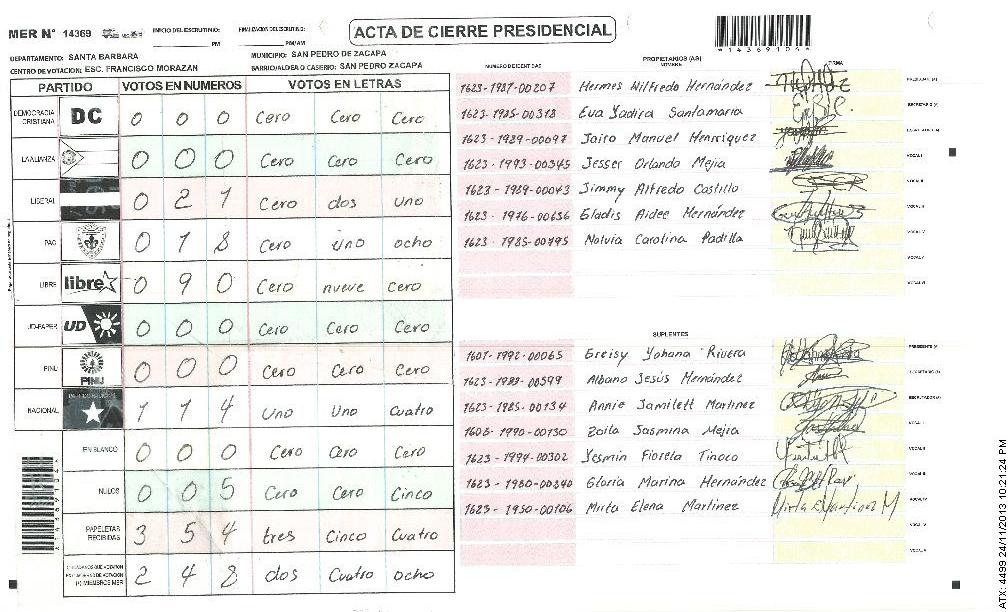 MER N° 14369
INICIO DEL ESCRUTINIO: PM
FINALIZACION DEL ESCRUTINIO: PM/AM
ACTA DE CIERRE PRESIDENCIAL
14369104
DEPARTAMENTO: SANTA BARBARA
MUNICIPIO: SAN PEDRO DE ZACAPA
CENTRO DE VOTACION: ESC. FRANCISCO MORAZAN
BARRIO/ALDEA O CASERIO: SAN PEDRO ZACAPA
PARTIDO VOTOS EN NUMEROS VOTOS EN LETRAS
DEMOCRACIA CRISTIANA DC 0 0 0 Cero Cero Cero
LA ALIANZA 0 0 0 Cero Cero Cero
LIBERAL 0 2 1 Cero dos uno
PAC 0 1 8 Cero uno ocho
LIBRE libre 0 9 0 Cero nueve Cero
UD-FAPER UD 0 0 0 Cero Cero Cero
PINU PINU 0 0 0 Cero Cero Cero
NACIONAL 1 1 4 Uno Uno Cuatro
EN BLANCO 0 0 0 Cero Cero Cero
NULOS 0 0 5 Cero Cero Cinco
PAPELETAS RECIBIDAS 3 5 4 tres Cinco Cuatro
(+) MIEMBROS MER 2 4 8 dos Cuatro ocho
NUMERO DE IDENTIDAD PROPIETARIOS (AS) NOMBRE FIRMA
1623-1987-00207 Hermes Wilfredo Hernández PRESIDENTE (A)
1623-1985-00318 Eva Yadira Santamaria SECRETARIO (A)
1623-1989-00097 Jairo Manuel Henriquez ESCRUTADOR (A)
1623-1993-00345 Jesser Orlando Mejia VOCAL I
1623-1989-00043 Jimmy Alfredo Castillo VOCAL II
1623-1976-00636 Gladis Aidee Hernández VOCAL III
1623-1985-00795 Nolvia Carolina Padilla VOCAL IV
VOCAL V
VOCAL VI
SUPLENTES
1601-1992-00065 Greisy Yohana Rivera PRESIDENTE (A)
1623-1989-00599 Albano Jesús Hernández SECRETARIO (A)
1623-1985-00134 Annie Jamilett Martinez ESCRUTADOR (A)
1606-1990-00730 Zoila Jasmina Mejia VOCAL I
1623-1994-00302 Yesmin Fiorela Tinoco VOCAL II
1623-1980-00340 Gloria Marina Hernández VOCAL III
1623-1950-00106 Mirta Elena Martinez Mirta E Martinez M VOCAL IV
VOCAL V
VOCAL VI
ATX: 4499 24/11/2013 10:21:24 PM